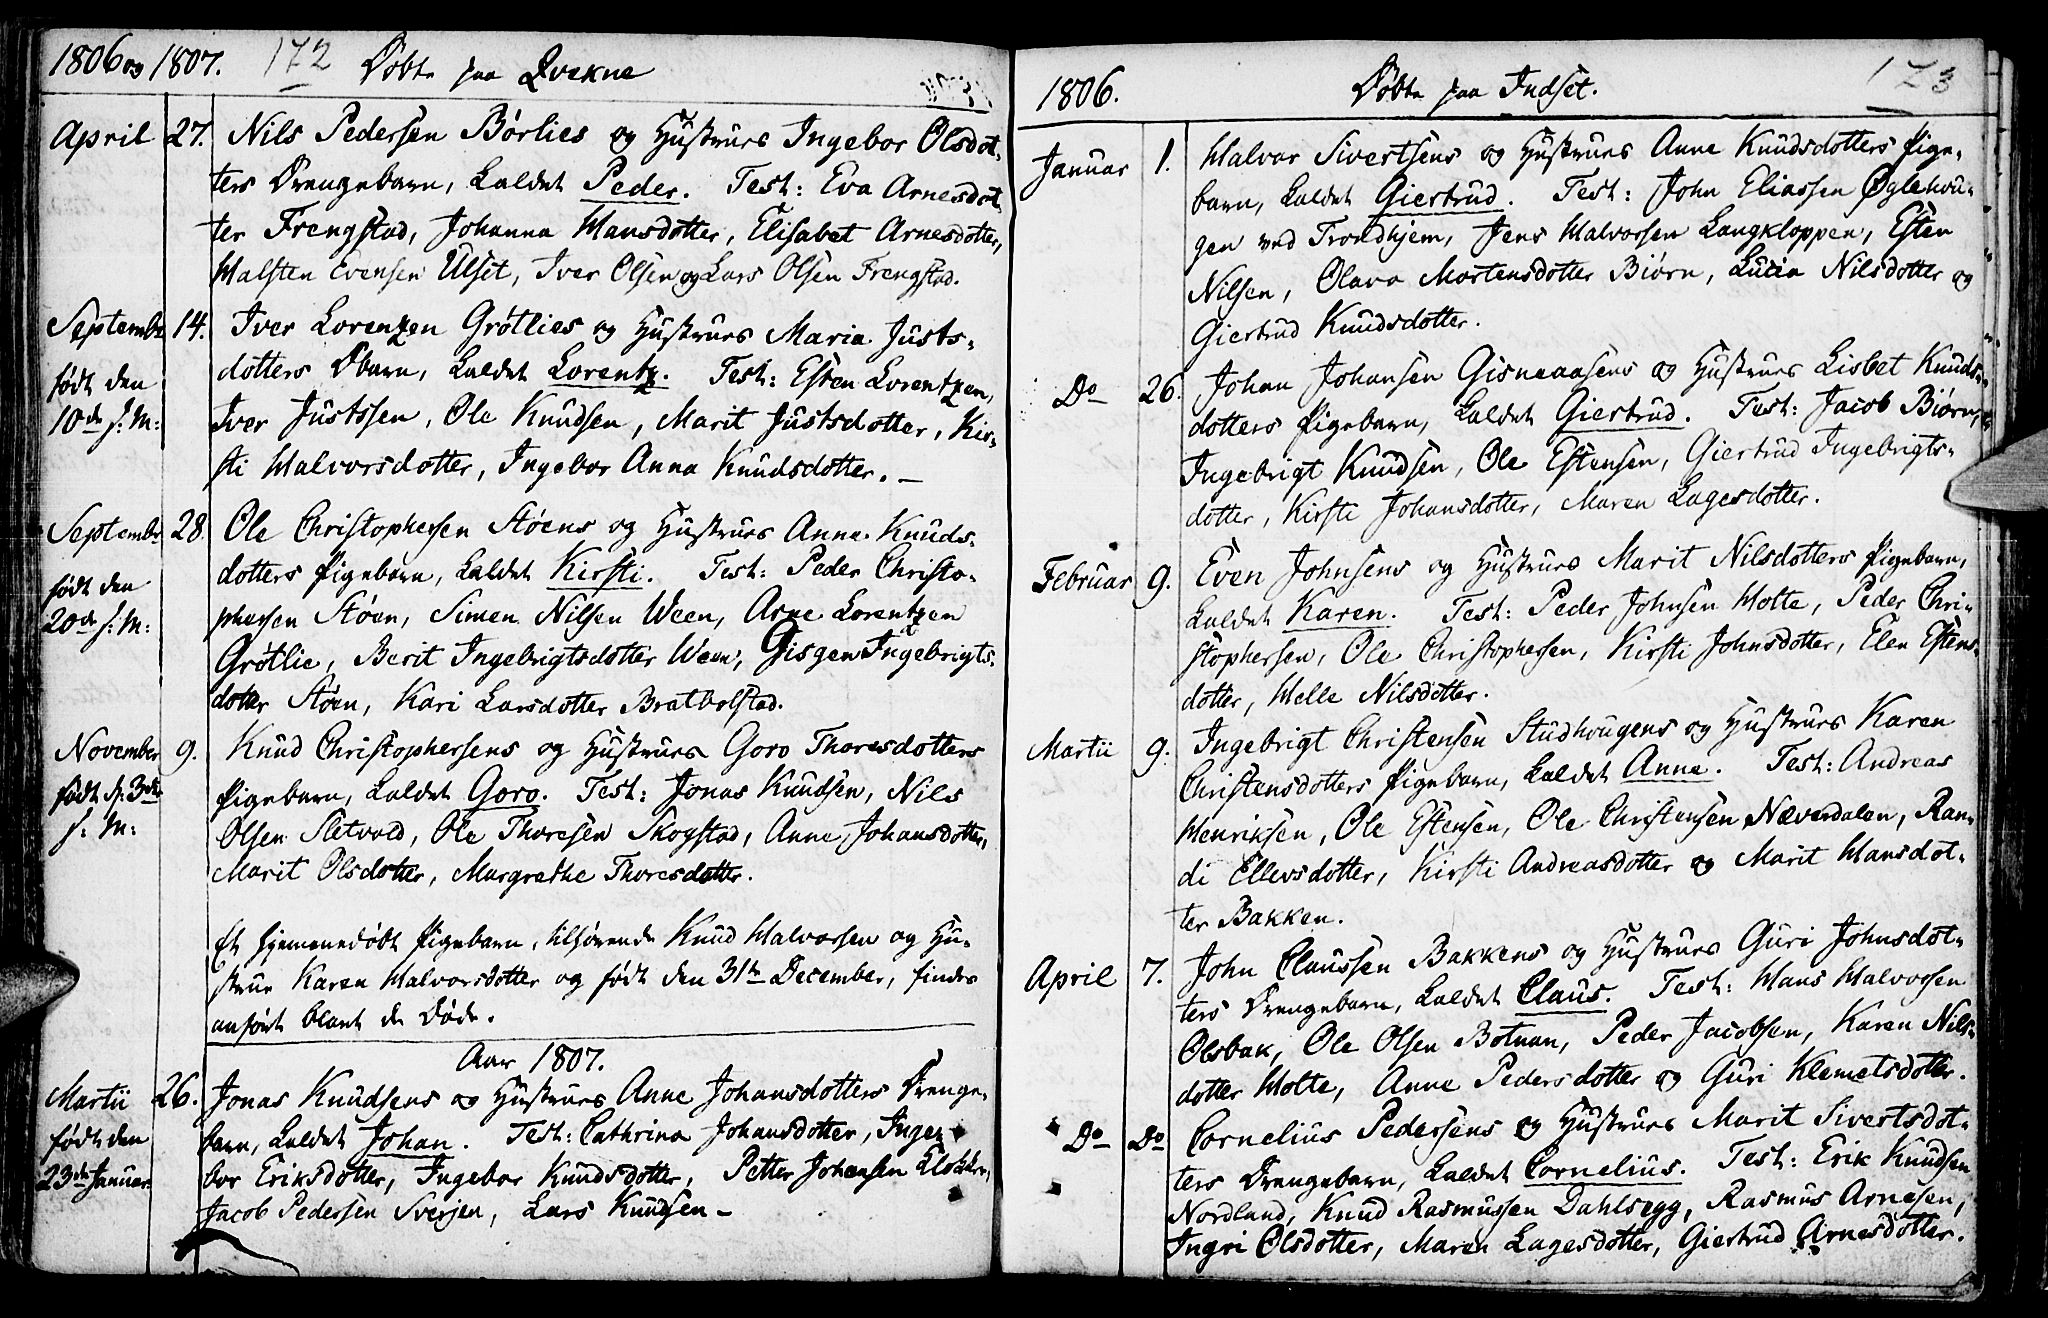 1806 og 1807. 172 Døbte paa Qvekne
April 27. Nils Pedersen Børlies og Hustrues Ingebor Olsdot-
ters Drengebarn, kaldet Peder. Test: Eva Arnesdot-
ter Frengstad, Johanna Hansdotter, Elisabet Arnesdotter,
Halsten Evensen Ulset, Iver Olsen og Lars Olsen Frengstad.
Septembr 14. Iver Lorentzen Grøtlies og Hustrues Maria Justs-
født den dotters Dbarn, kaldet Lorentz. Test: Esten Lorentzen,
10de s: M: Iver Justssen, Ole Knudsen, Marit Justsdotter, Kir-
sti Halvorsdotter, Ingebor Anna Knudsdotter. –
Septembr 28. Ole Christophersen Støens og Hustrues Anne Knuds-
født den dotters Pigebarn, kaldet Kirsti. Test: Peder Christo-
20de s: M: phersen Støen, Simen Nilsen Ween, Arne Lorentzen
Grøtlie, Berit Ingebrigtsdotter Ween, Gisgen Ingebrigts-
dotter Støen, Kari Larsdotter Bratbolstad.
November 9. Knud Christophersens og Hustrues Goro Thoresdotters
født d: 3de Pigebarn, kaldet Goro. Test: Jonas Knudsen, Nils
s: M: Olsen Sletvold, Ole Thoresen Skogstad, Anne Johansdotter,
Marit Olsdotter, Margrethe Thoresdotter.
Et hjemmedøbt Pigebarn, tilhørende Knud Halvorsen og Hu-
strue Karen Halvorsdotter og født den 31te December, findes
anført blant de Døde.
Aar 1807.
Martii 26. Jonas Knudsens og Hustrues Anne Johansdotters Drenge-
født den barn, kaldet Johan. Test: Cathrina Johansdotter, Inge-
23de Januar. bor Eriksdotter, Ingebor Knudsdotter, Petter Johansen Klokker,
Jacob Pedersen Sverjen, Lars Knudsen –
1806. Døbte paa Indset. 173
Januar 1. Halvor Sivertsens og Hustrues Anne Knudsdotters Pige-
barn, kaldet Giertrud. Test: John Eliassen Øglehou-
gen ved Trondhjem, Jens Halvorsen Langkloppen, Esten
Nilsen, Olava Mortensdotter Biørn, Lucia Nilsdotter og
Giertrud Knudsdotter.
Do 26. Johan Johansen Gisnaaasens og Hustrues Lisbet Knuds-
dotters Pigebarn, kaldet Giertrud. Test: Jacob Biørn,
Ingebrigt Knudsen, Ole Estensen, Giertrud Ingebrigts-
dotter, Kirsti Johansdotter, Maren Lagesdotter.
Februar 9. Even Johnsens og Hustrues Marit Nilsdotters Pigebarn,
kaldet Karen. Test: Peder Johnsen Holte, Peder Chri-
stophersen, Ole Christophersen, Kirsti Johnsdotter, Elen Estens-
dotter, Helle Nilsdotter.
Martii 9. Ingebrigt Christensen Studhougens og Hustrues Karen
Christensdotters Pigebarn, kaldet Anne. Test: Andreas
Henriksen, Ole Estensen, Ole Christensen Næverdalen, Ran-
di Ellevsdotter, Kirsti Andreasdotter og Marit Hansdot-
ter Bakken.
April 7. John Claussen Bakkens og Hustrues Guri Johnsdot-
ters Drengebarn, kaldet Claus. Test: Hans Halvorsen
Olsbak, Ole Olsen Botnan, Peder Jacobsen, Karen Nils-
dotter Holte, Anne Pedersdotter og Guri Klemetsdotter.
Do Do Cornelius Pedersens og Hustrues Marit Sivertsdot-
ters Drengebarn, kaldet Cornelius. Test: Erik Knudsen
Nordland, Knud Rasmussen Dahlsegg, Rasmus Arnesen,
Ingri Olsdotter, Maren Lagesdotter, Giertrud Arnesdotter.